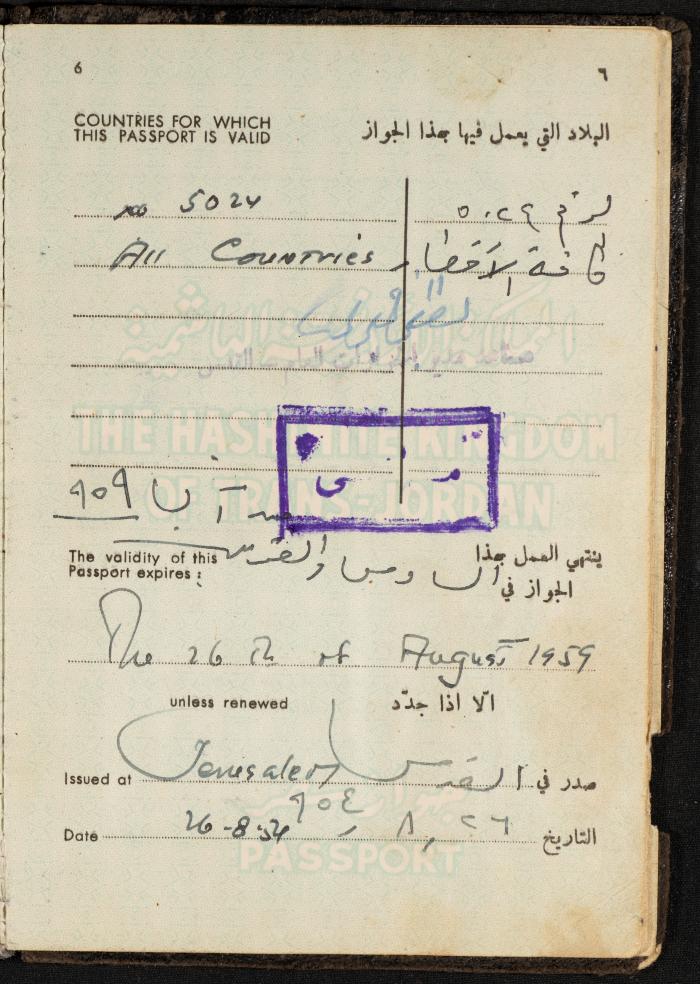 6 ٦
COUNTRIES FOR WHICH البلاد التي يعمل فيها بهذا الجواز
THIS PASSPORT IS VALID
no 5024 ٥٠٢٤
All Countries كافة الأقطار
THE HASHEMITE KINGDOM
OF TRANS-JORDAN
آب ٩٥٩
The validity of this ينتهي العمل بهذا
Passport expires: الجواز في
The 26 Th of August 1959
unless renewed الّا اذا جدّد
Issued at Jerusalem القدس صدر في
٩٥٤
Date 26-8-54 ٢٦ ٨ التاريخ
PASSPORT